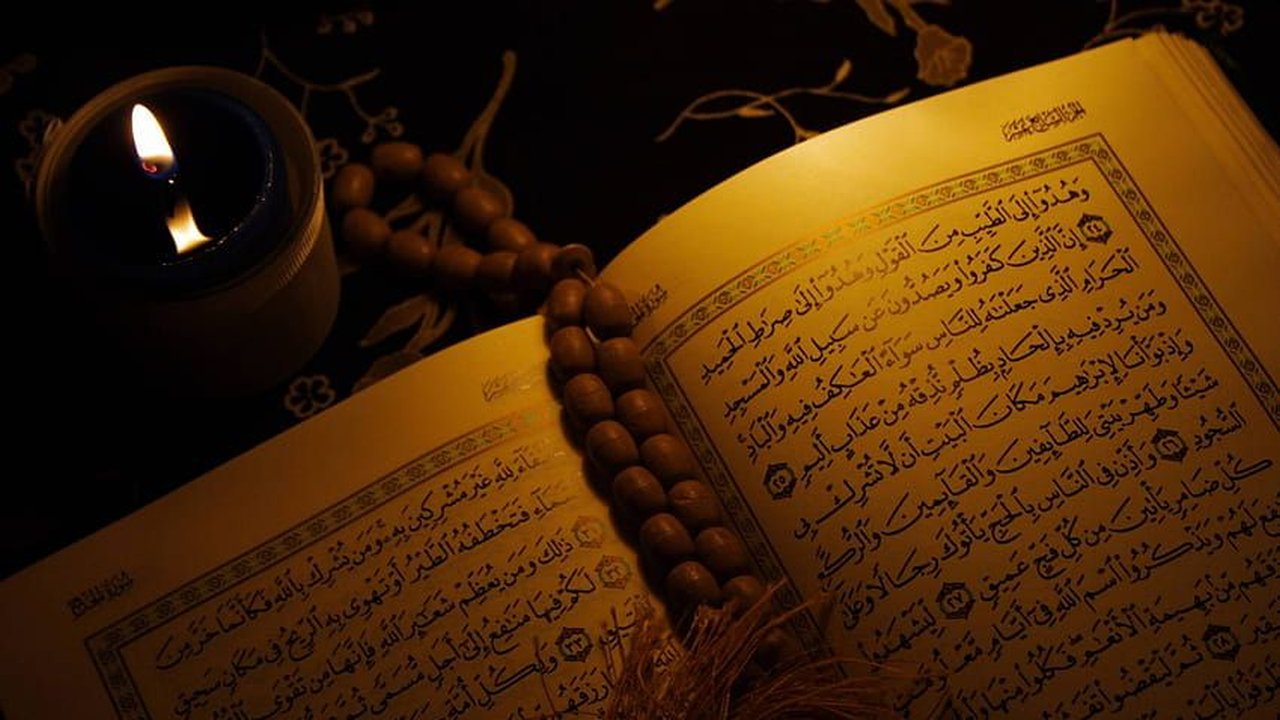 الجزء السابع عشر
وَهُدُوٓا۟ إِلَى ٱلطَّيِّبِ مِنَ ٱلْقَوْلِ وَهُدُوٓا۟ إِلَىٰ صِرَٰطِ ٱلْحَمِيدِ
٢٤ إِنَّ ٱلَّذِينَ كَفَرُوا۟ وَيَصُدُّونَ عَن سَبِيلِ ٱللَّهِ وَٱلْمَسْجِدِ
ٱلْحَرَامِ ٱلَّذِى جَعَلْنَٰهُ لِلنَّاسِ سَوَآءً ٱلْعَٰكِفُ فِيهِ وَٱلْبَادِ
وَمَن يُرِدْ فِيهِ بِإِلْحَادٍۭ بِظُلْمٍ نُّذِقْهُ مِنْ عَذَابٍ أَلِيمٍ ٢٥
وَإِذْ بَوَّأْنَا لِإِبْرَٰهِيمَ مَكَانَ ٱلْبَيْتِ أَن لَّا تُشْرِكْ بِى
شَيْـًٔا وَطَهِّرْ بَيْتِىَ لِلطَّآئِفِينَ وَٱلْقَآئِمِينَ وَٱلرُّكَّعِ
ٱلسُّجُودِ ٢٦ وَأَذِّن فِى ٱلنَّاسِ بِٱلْحَجِّ يَأْتُوكَ رِجَالًا وَعَلَىٰ
كُلِّ ضَامِرٍ يَأْتِينَ مِن كُلِّ فَجٍّ عَمِيقٍ ٢٧ لِّيَشْهَدُوا۟
لَهُمْ وَيَذْكُرُوا۟ ٱسْمَ ٱللَّهِ فِىٓ أَيَّامٍ
مِّنۢ بَهِيمَةِ ٱلْأَنْعَٰمِ فَكُلُوا۟ مِنْهَا
٢٨ ثُمَّ لْيَقْضُوا۟
سورة الحج
لِلَّهِ غَيْرَ مُشْرِكِينَ بِهِۦ وَمَن يُشْرِكْ بِٱللَّهِ فَكَأَنَّمَا خَرَّ مِنَ
فَتَخْطَفُهُ ٱلطَّيْرُ أَوْ تَهْوِى بِهِ ٱلرِّيحُ فِى مَكَانٍ سَحِيقٍ
ذَٰلِكَ وَمَن يُعَظِّمْ شَعَٰٓئِرَ ٱللَّهِ فَإِنَّهَا مِن تَقْوَى
لَكُمْ فِيهَا مَنَٰفِعُ إِلَىٰٓ أَجَلٍ مُّسَمًّى
٣٣ وَلِكُلِّ أُمَّةٍ